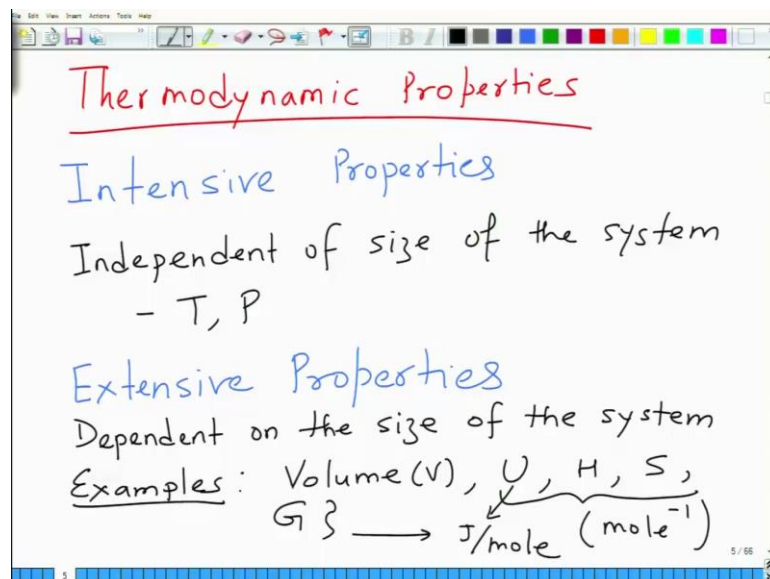 File Edit View Insert Actions Tools Help
B I
Thermodynamic Properties
Intensive Properties
Independent of size of the system
- T, P
Extensive Properties
Dependent on the size of the system
Examples: Volume (V), U, H, S,
G } → J/mole (mole⁻¹)
5/66
5